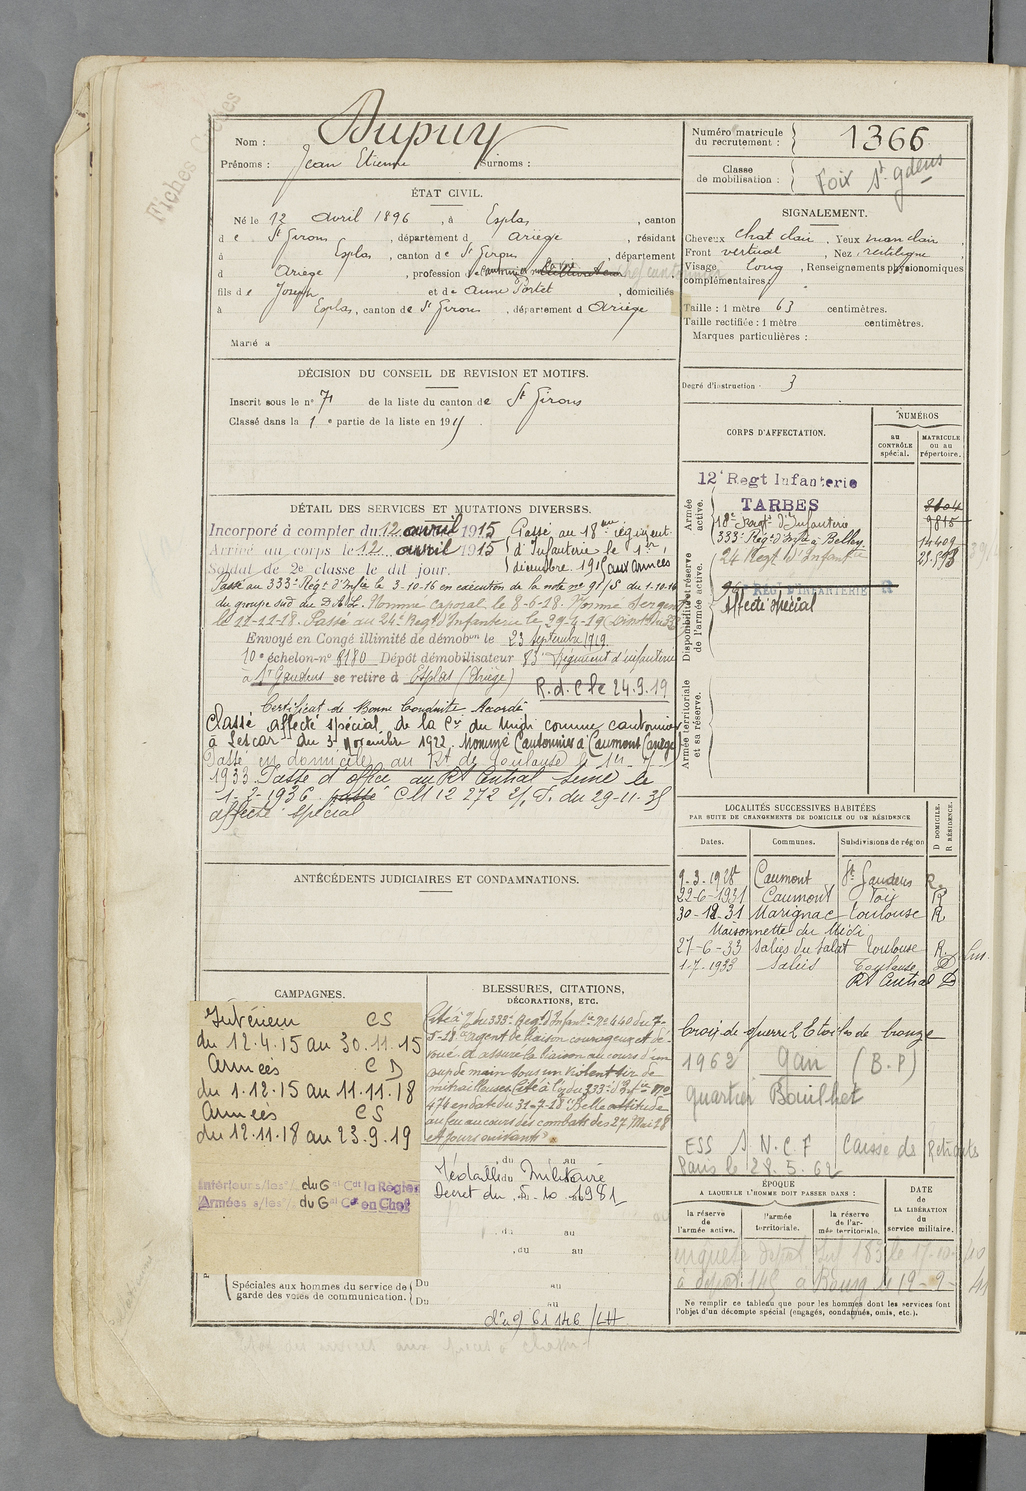 Fiches
Nom : Dupuy
Prénoms : Jean Etienne Surnoms :
Numéro matricule du recrutement : 1366
Classe de mobilisation : Foix St gdens
ÉTAT CIVIL.
Né le 12 avril 1896, à Esplas, canton
de St Girons, département d Ariège, résidant
à Esplas, canton de St Girons, département
d Ariège, profession de
fils de Joseph et de Anne Portet, domiciliés
à Esplas, canton de St Girons, département d Ariège
Marié à
SIGNALEMENT.
Cheveux chat clair, Yeux marr clair,
Front vertical, Nez rectiligne,
Visage long, Renseignements physionomiques
complémentaires :
Taille : 1 mètre 63 centimètres.
Taille rectifiée : 1 mètre centimètres.
Marques particulières :
Degré d'instruction : 3
DÉCISION DU CONSEIL DE REVISION ET MOTIFS.
Inscrit sous le n° 71 de la liste du canton de St Girons
Classé dans la 1e partie de la liste en 191
CORPS D'AFFECTATION.
NUMÉROS
au CONTRÔLE spécial.
MATRICULE ou au répertoire.
Armée active.
12e Regt Infanterie
TARBES
18e Regt d'Infanterie 9815
333e Régt d'Infie à Belley 14409
24 Regt d'Infantie
Disponibilité et réserve de l'armée active.
RÉG. D'INFANTERIE
Affecté spécial
Armée territoriale et sa réserve.
DÉTAIL DES SERVICES ET MUTATIONS DIVERSES.
Incorporé à compter du 12 avril 1915 Passé au 18eme régiment
Arrivé au corps le 12 avril 1915 d'Infanterie le 1er
Soldat de 2e classe le dit jour. décembre 1915 (aux armées
Passé au 333e Régt d'Infie le 3-10-16 en exécution de la note n° 91/S du 1-10-16
du groupe sud du D.A.L. Nommé caporal le 8-6-18. Nommé Sergent
le 11-11-18. Passé au 24e Regt d'Infanterie le 29-4-19
Envoyé en Congé illimité de démobon le 23 septembre 1919
10e échelon-n° 8180 Dépôt démobilisateur 83e Régiment d'infanterie
à St Gaudens se retire à Esplas (Ariège)
R.d.C le 24.9.19
Certificat de Bonne Conduite Accordé
Classé affecté spécial de la Cie du Midi comme cantonnier
à Lescar du 3 Novembre 1922. Nommé Cantonnier à Caumont
Passé en domicile au Rt de Toulouse le 1er-7-
1933. Passé d'office au Rt Central Seine le
1-3-1936. passé CM 12 272 2/T. du 29-11-35
affecté spécial
ANTÉCÉDENTS JUDICIAIRES ET CONDAMNATIONS.
LOCALITÉS SUCCESSIVES HABITÉES
PAR SUITE DE CHANGEMENTS DE DOMICILE OU DE RÉSIDENCE
Dates. Communes. Subdivisions de région D DOMICILE. R RÉSIDENCE.
9-3-1928 Caumont St Gaudens R
22-6-1931 Caumont Foix R
30-12-31 Marignac Toulouse R
Maisonnette du Midi
27-6-33 Salies du Salat Toulouse R
1-7-1933 Salies Toulouse D
Rt Central D
CAMPAGNES.
Intérieur CS
du 12.4.15 au 30.11.15
Armées CD
du 1.12.15 au 11.11.18
Armées CS
du 12.11.18 au 23.9.19
Intérieurs s/les du Gal Cdt la Région
Armées s/les du Gal Cdt en Chef
BLESSURES, CITATIONS, DÉCORATIONS, ETC.
Cité à l'o du 333e Regt d'Infantie N° 440 du 7-
5-18 "agent de liaison courageux et dé-
voué. a assuré la liaison au cours d'un
coup de main sous un violent tir de
mitrailleuses. Cité à l'o du 333e d'Infie N°
474 en date du 31-7-18 "Belle attitude
au feu au cours des combats des 27 Mai 18
et jours suivants".
Médaille Militaire
Décret du 5-10-1981
du au
du au
, du au
Croix de guerre 2 Etoiles de bronze
1962 Gan (B.P)
quartier Bouilhet
ESS S.N.C.F Caisse des Retraites
Paris le 28.5.62
ÉPOQUE
À LAQUELLE L'HOMME DOIT PASSER DANS :
la réserve de l'armée active.
l'armée territoriale.
la réserve de l'armée territoriale.
DATE DE LA LIBÉRATION du service militaire.
Ne remplir ce tableau que pour les hommes dont les services font
l'objet d'un décompte spécial (engagés, condamnés, omis, etc.).
Spéciales aux hommes du service de garde des voies de communication.
Du au
Du au
61146/LH